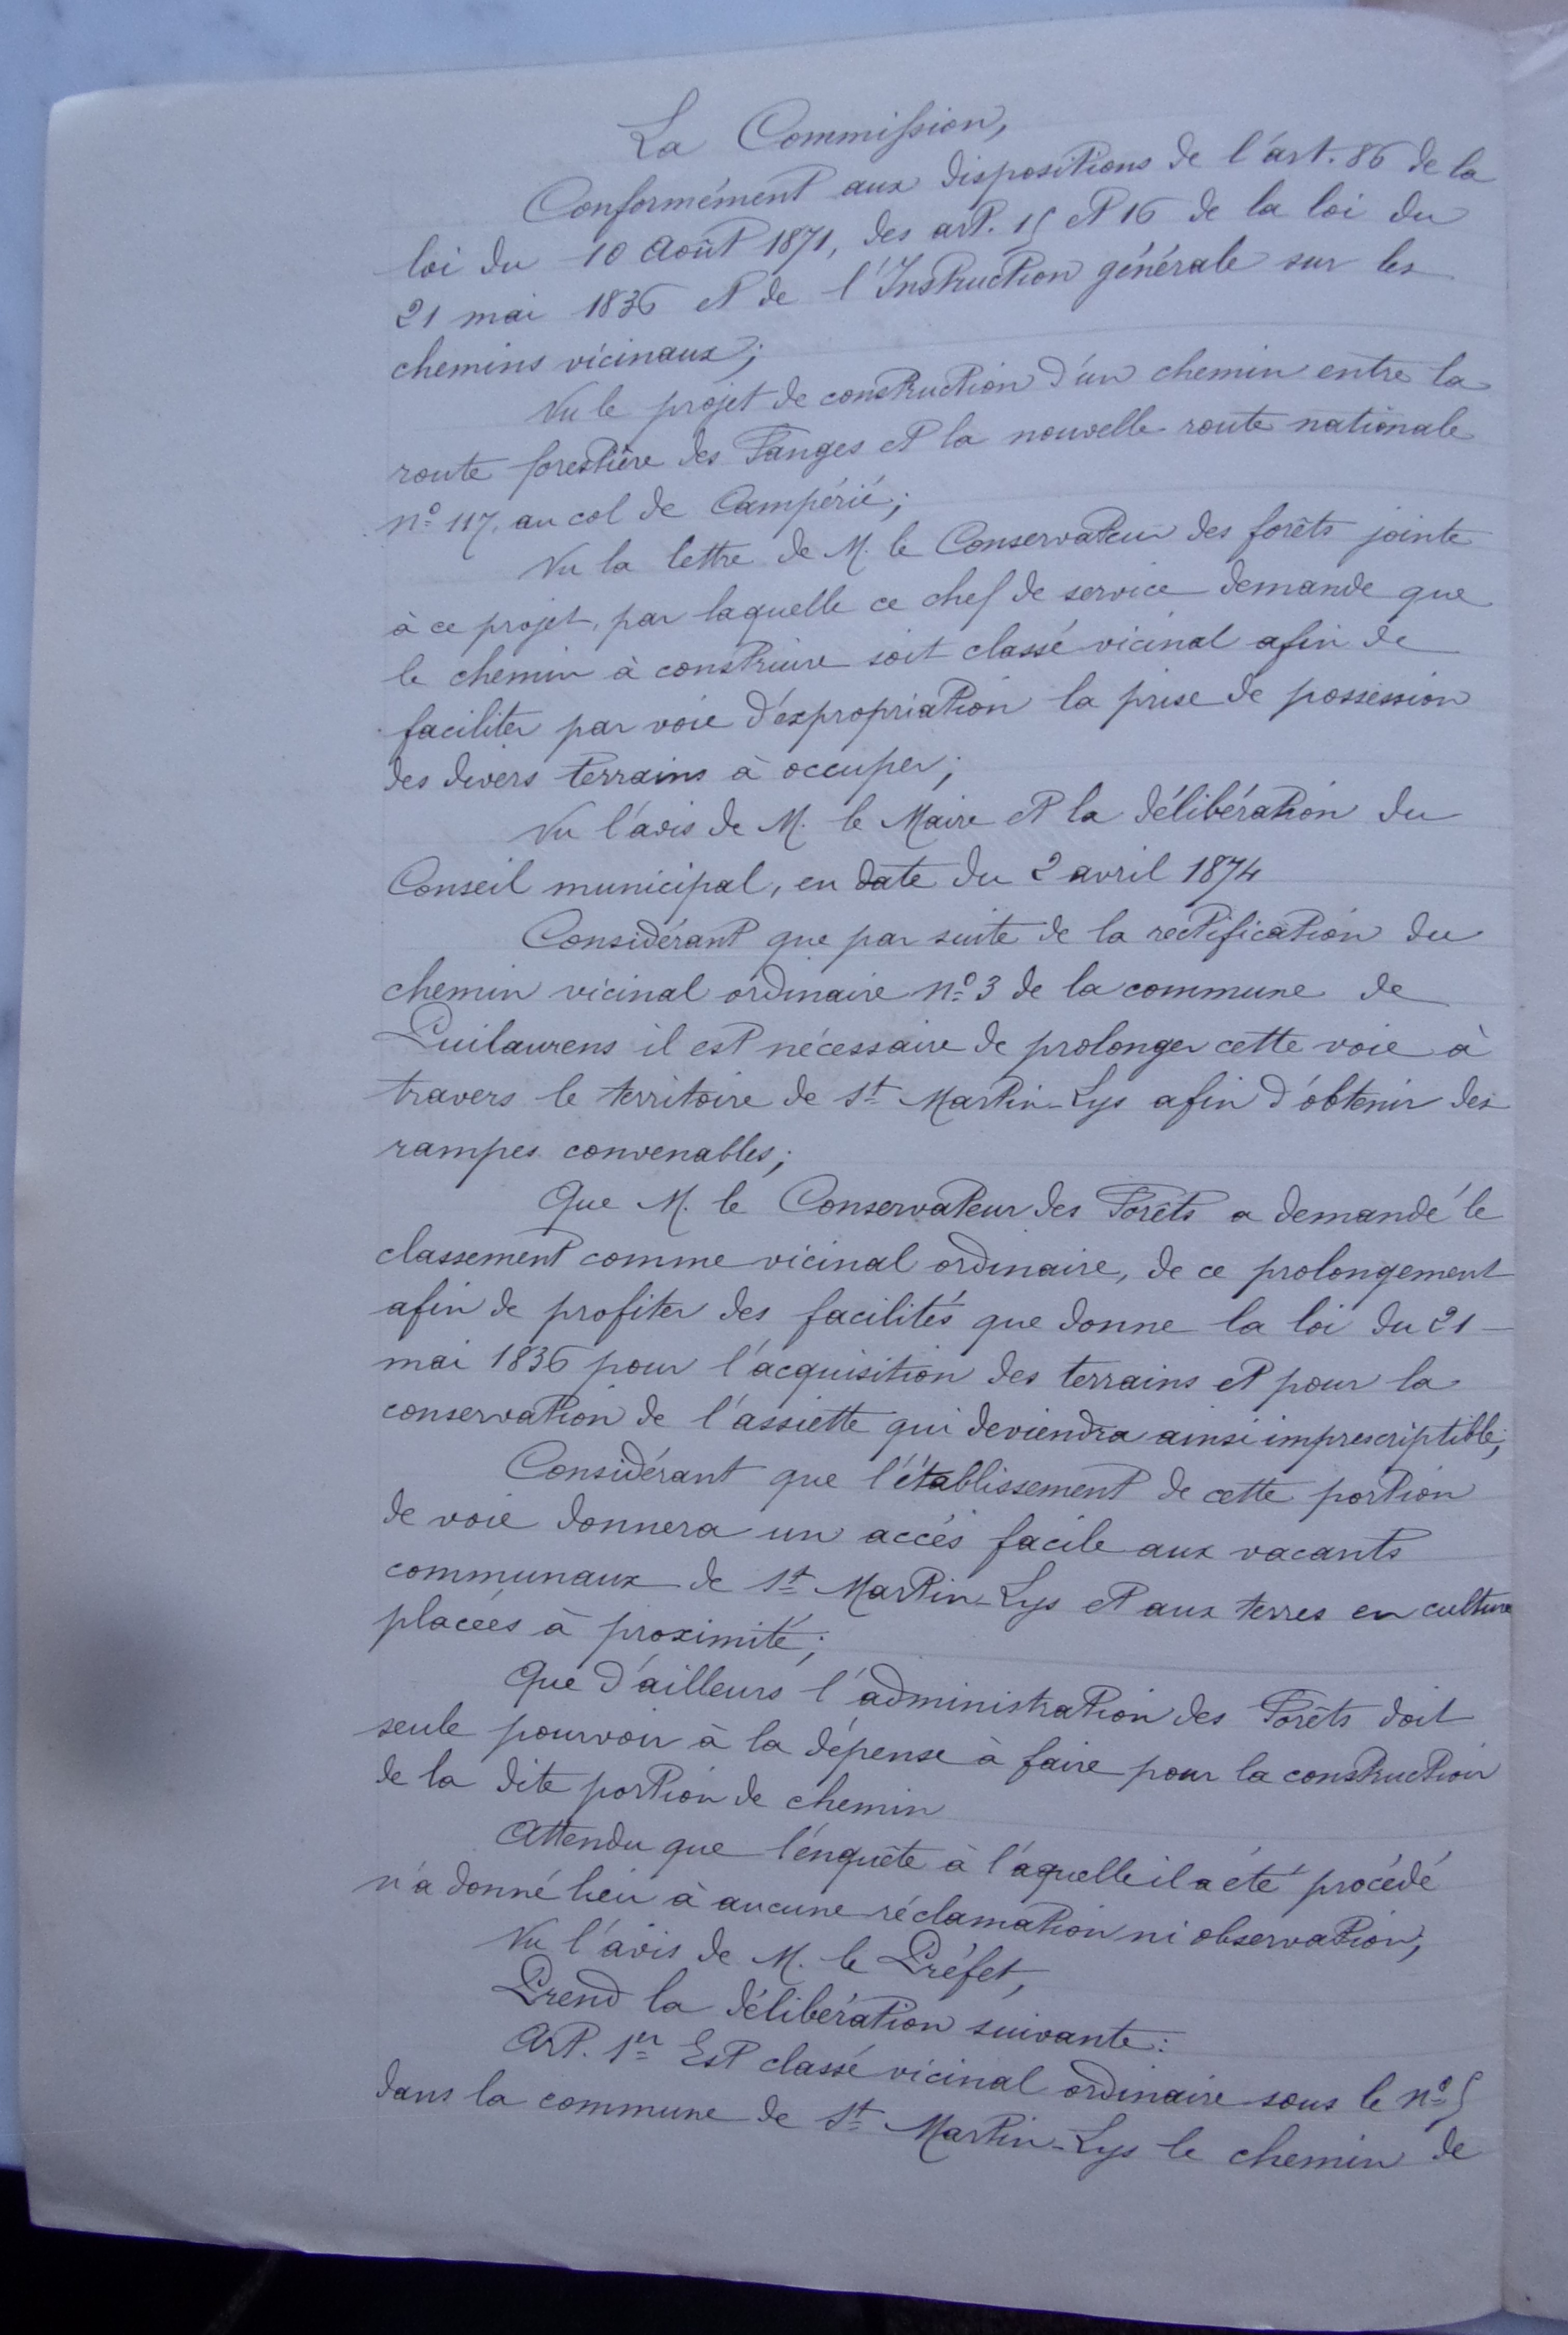 La Commission,
Conformément aux dispositions de l'art. 86 de la
loi du 10 Août 1871, des art. 15 et 16 de la loi du
21 mai 1836 et de l'Instruction générale sur les
chemins vicinaux;
Vu le projet de construction d'un chemin entre la
route forestière des Fanges et la nouvelle route nationale
nº 117, au col de Campérié;
Vu la lettre de M. le Conservateur des forêts jointe
à ce projet, par laquelle ce chef de service demande que
le chemin à construire soit classé vicinal afin de
faciliter par voie d'expropriation la prise de possession
des divers terrains à occuper;
Vu l'avis de M. le Maire et la délibération du
Conseil municipal, en date du 2 avril 1874
Considérant que par suite de la rectification du
chemin vicinal ordinaire nº 3 de la commune de
Puilaurens il est nécessaire de prolonger cette voie à
travers le territoire de St Martin-Lys afin d'obtenir des
rampes convenables;
Que M. le Conservateur des Forêts a demandé le
classement comme vicinal ordinaire, de ce prolongement
afin de profiter des facilités que donne la loi du 21
mai 1836 pour l'acquisition des terrains et pour la
conservation de l'assiette qui deviendra ainsi imprescriptible;
Considérant que l'établissement de cette portion
de voie donnera un accès facile aux vacants
communaux de St Martin-Lys et aux terres en culture
placées à proximité;
Que d'ailleurs l'administration des Forêts doit
seule pourvoir à la dépense à faire pour la construction
de la dite portion de chemin
Attendu que l'enquête à l'aquelle il a été procédé
n'a donné lieu à aucune réclamation ni observation;
Vu l'avis de M. le Préfet,
Prend la délibération suivante:
Art. 1er Est classé vicinal ordinaire sous le nº 5
dans la commune de St Martin-Lys le chemin de